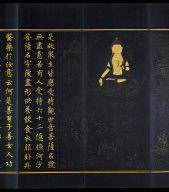 是故衆生皆應受持觀世音菩薩名號
無盡意若有人受持六十二億恒河沙
菩薩名字復盡形供養飲食衣服卧具
醫藥於汝意云何是善男子善女人功